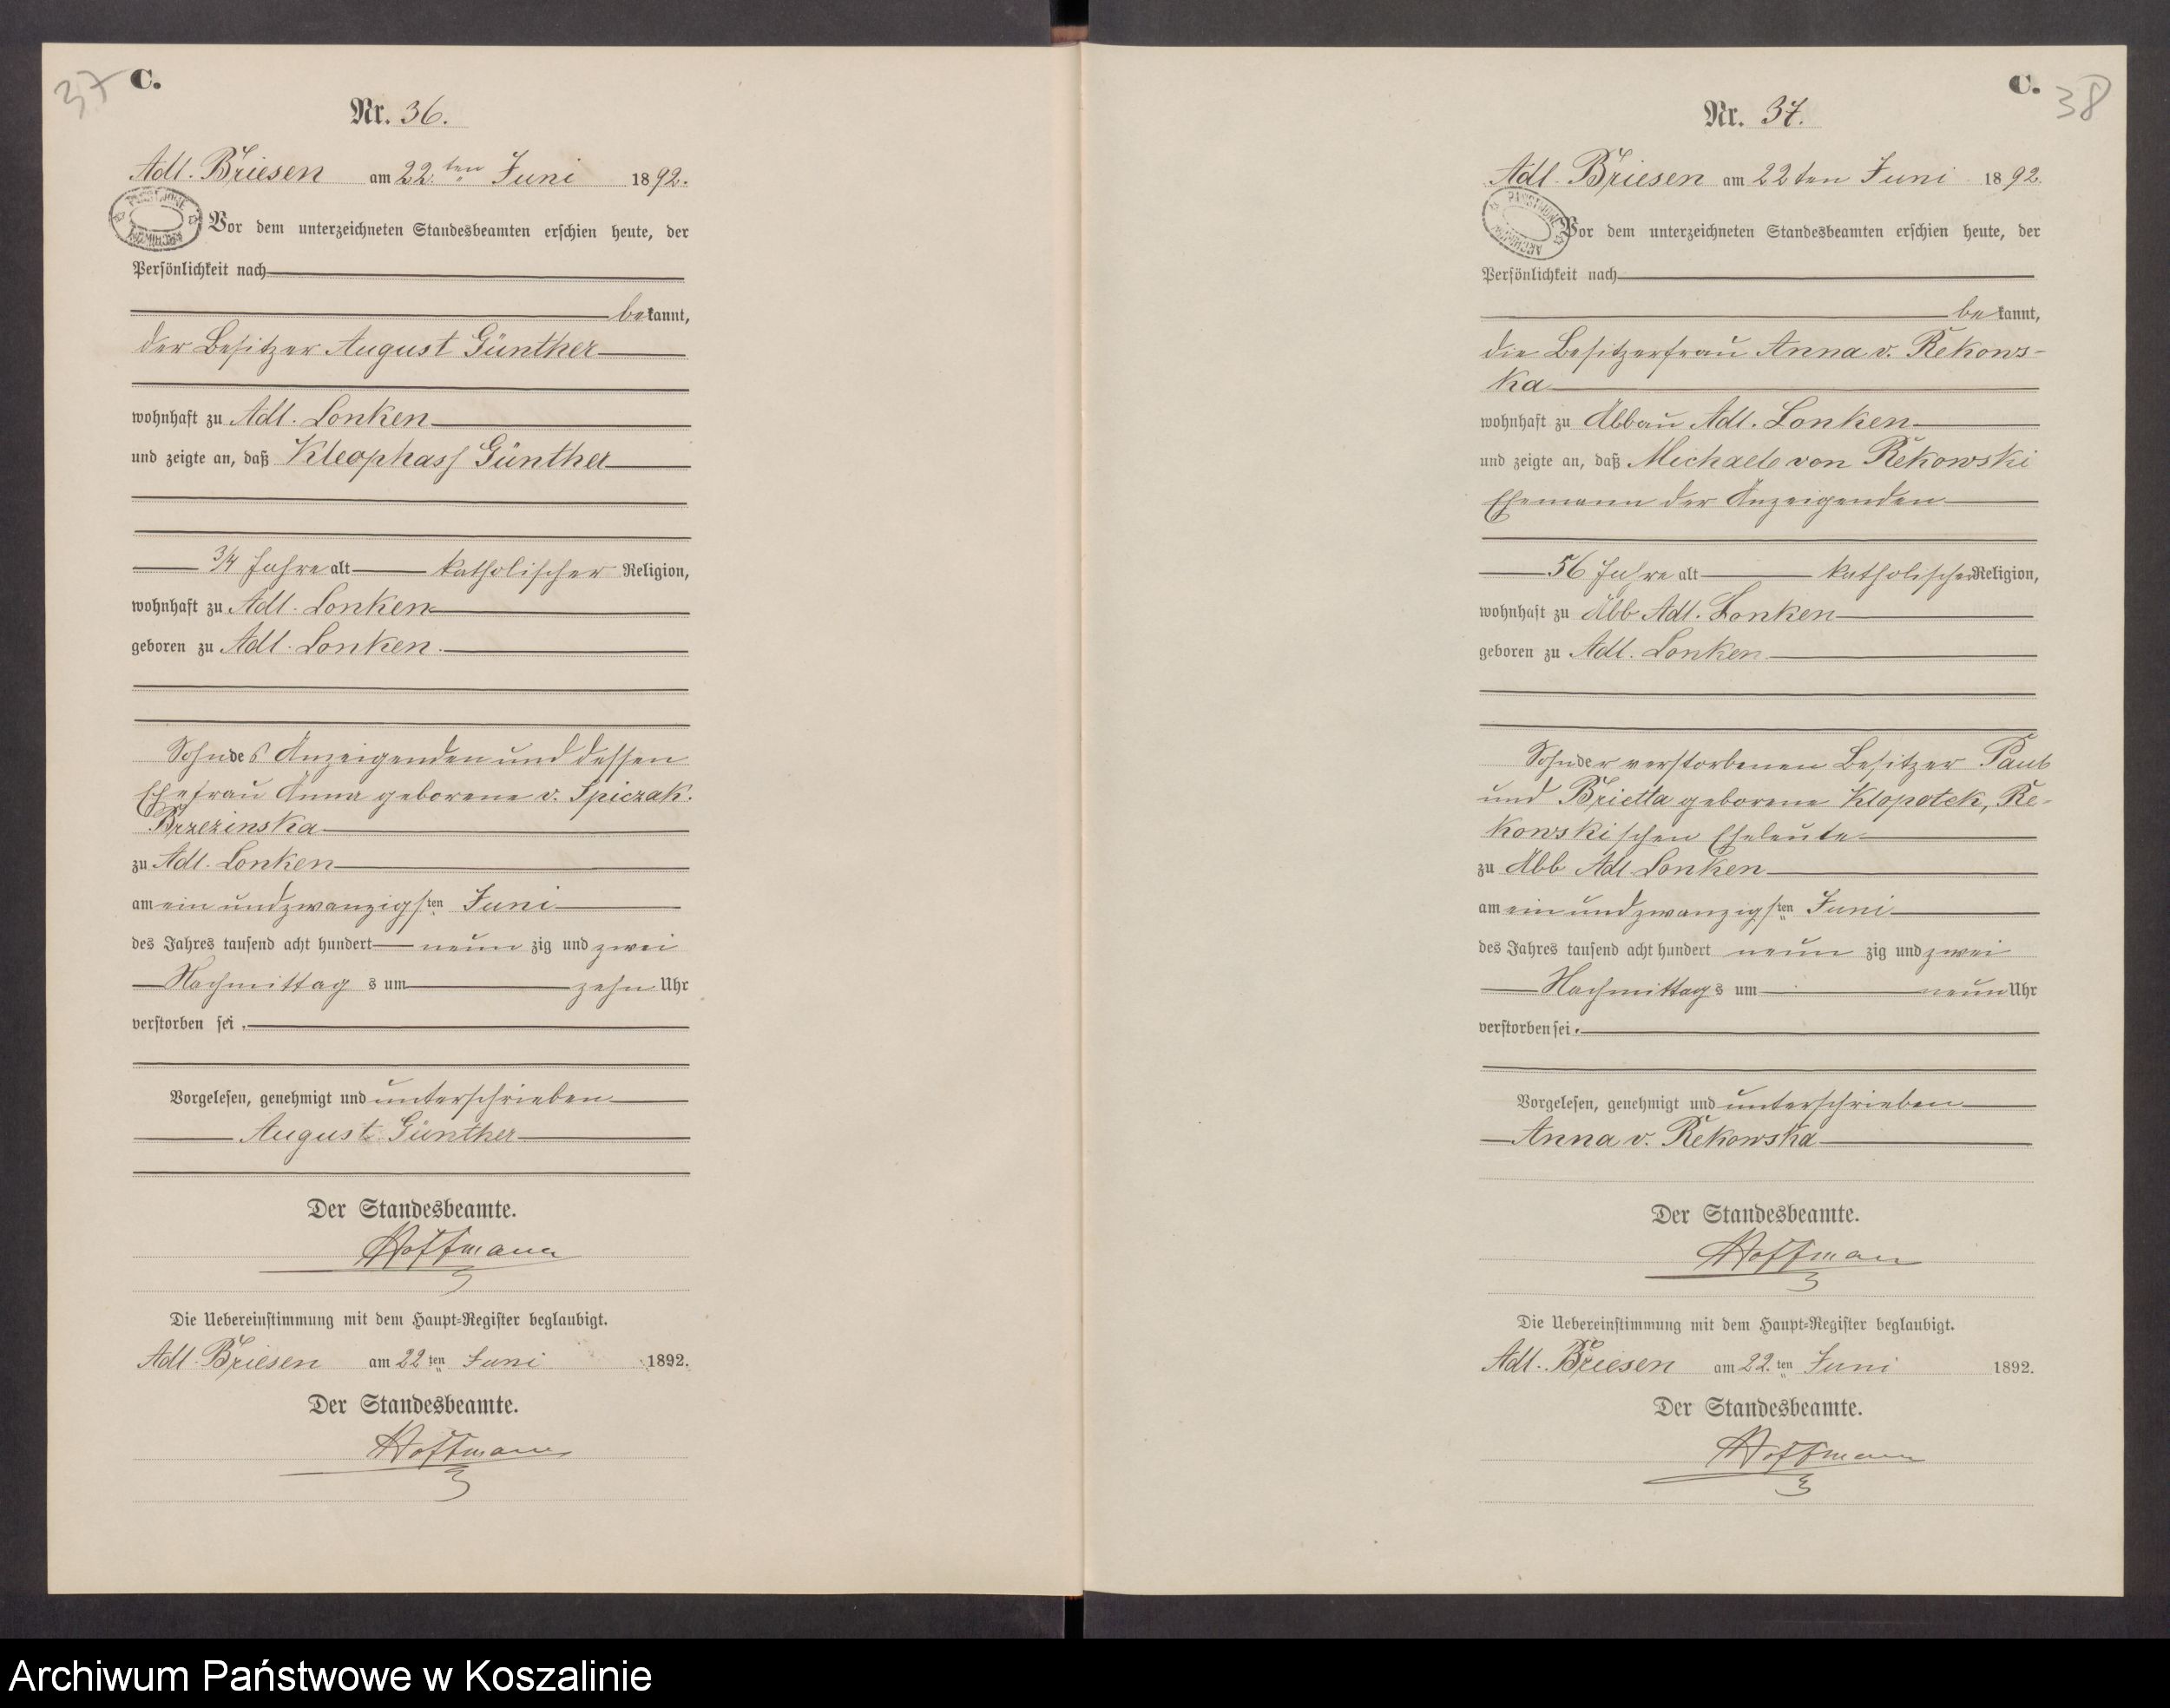 37
C.
Nr. 36.
Adl. Briesen am 22. ten Juni 1892.
Vor dem unterzeichneten Standesbeamten erschien heute, der
Persönlichkeit nach
bekannt,
der Besitzer August Günther
wohnhaft zu Adl. Lonken
und zeigte an, daß Kleophass Günther
3/4 Jahre alt katholischer Religion,
wohnhaft zu Adl. Lonken
geboren zu Adl. Lonken.
Sohn des Anzeigenden und dessen
Ehefrau Anna geborene v. Spiczak-
Brzezinska
zu Adl. Lonken
am ein und zwanzigsten Juni
des Jahres tausend acht hundert neun zig und zwei
Nachmittags um zehn Uhr
verstorben sei.
Vorgelesen, genehmigt und unterschrieben
August Günther
Der Standesbeamte.
Hoffmann
Die Uebereinstimmung mit dem Haupt-Register beglaubigt.
Adl. Briesen am 22ten Juni 1892.
Der Standesbeamte.
Hoffmann
C.
38
Nr. 37.
Adl. Briesen am 22ten Juni 1892.
Vor dem unterzeichneten Standesbeamten erschien heute, der
Persönlichkeit nach
bekannt,
die Besitzerfrau Anna v. Rekows-
ka
wohnhaft zu Abbau Adl. Lonken
und zeigte an, daß Michael von Rekowski
Ehemann der Anzeigenden
56 Jahre alt katholischer Religion,
wohnhaft zu Abb Adl. Lonken
geboren zu Adl. Lonken
Sohn der verstorbenen Besitzer Paul
und Brietta geborene Klopotek, Re-
kowskischen Eheleute
zu Abb Adl. Lonken
am ein und zwanzigsten Juni
des Jahres tausend acht hundert neun zig und zwei
Nachmittags um neun Uhr
verstorben sei.
Vorgelesen, genehmigt und unterschrieben
Anna v. Rekowska
Der Standesbeamte.
Hoffmann
Die Uebereinstimmung mit dem Haupt-Register beglaubigt.
Adl. Briesen am 22.ten Juni 1892.
Der Standesbeamte.
Hoffmann
Archiwum Państwowe w Koszalinie